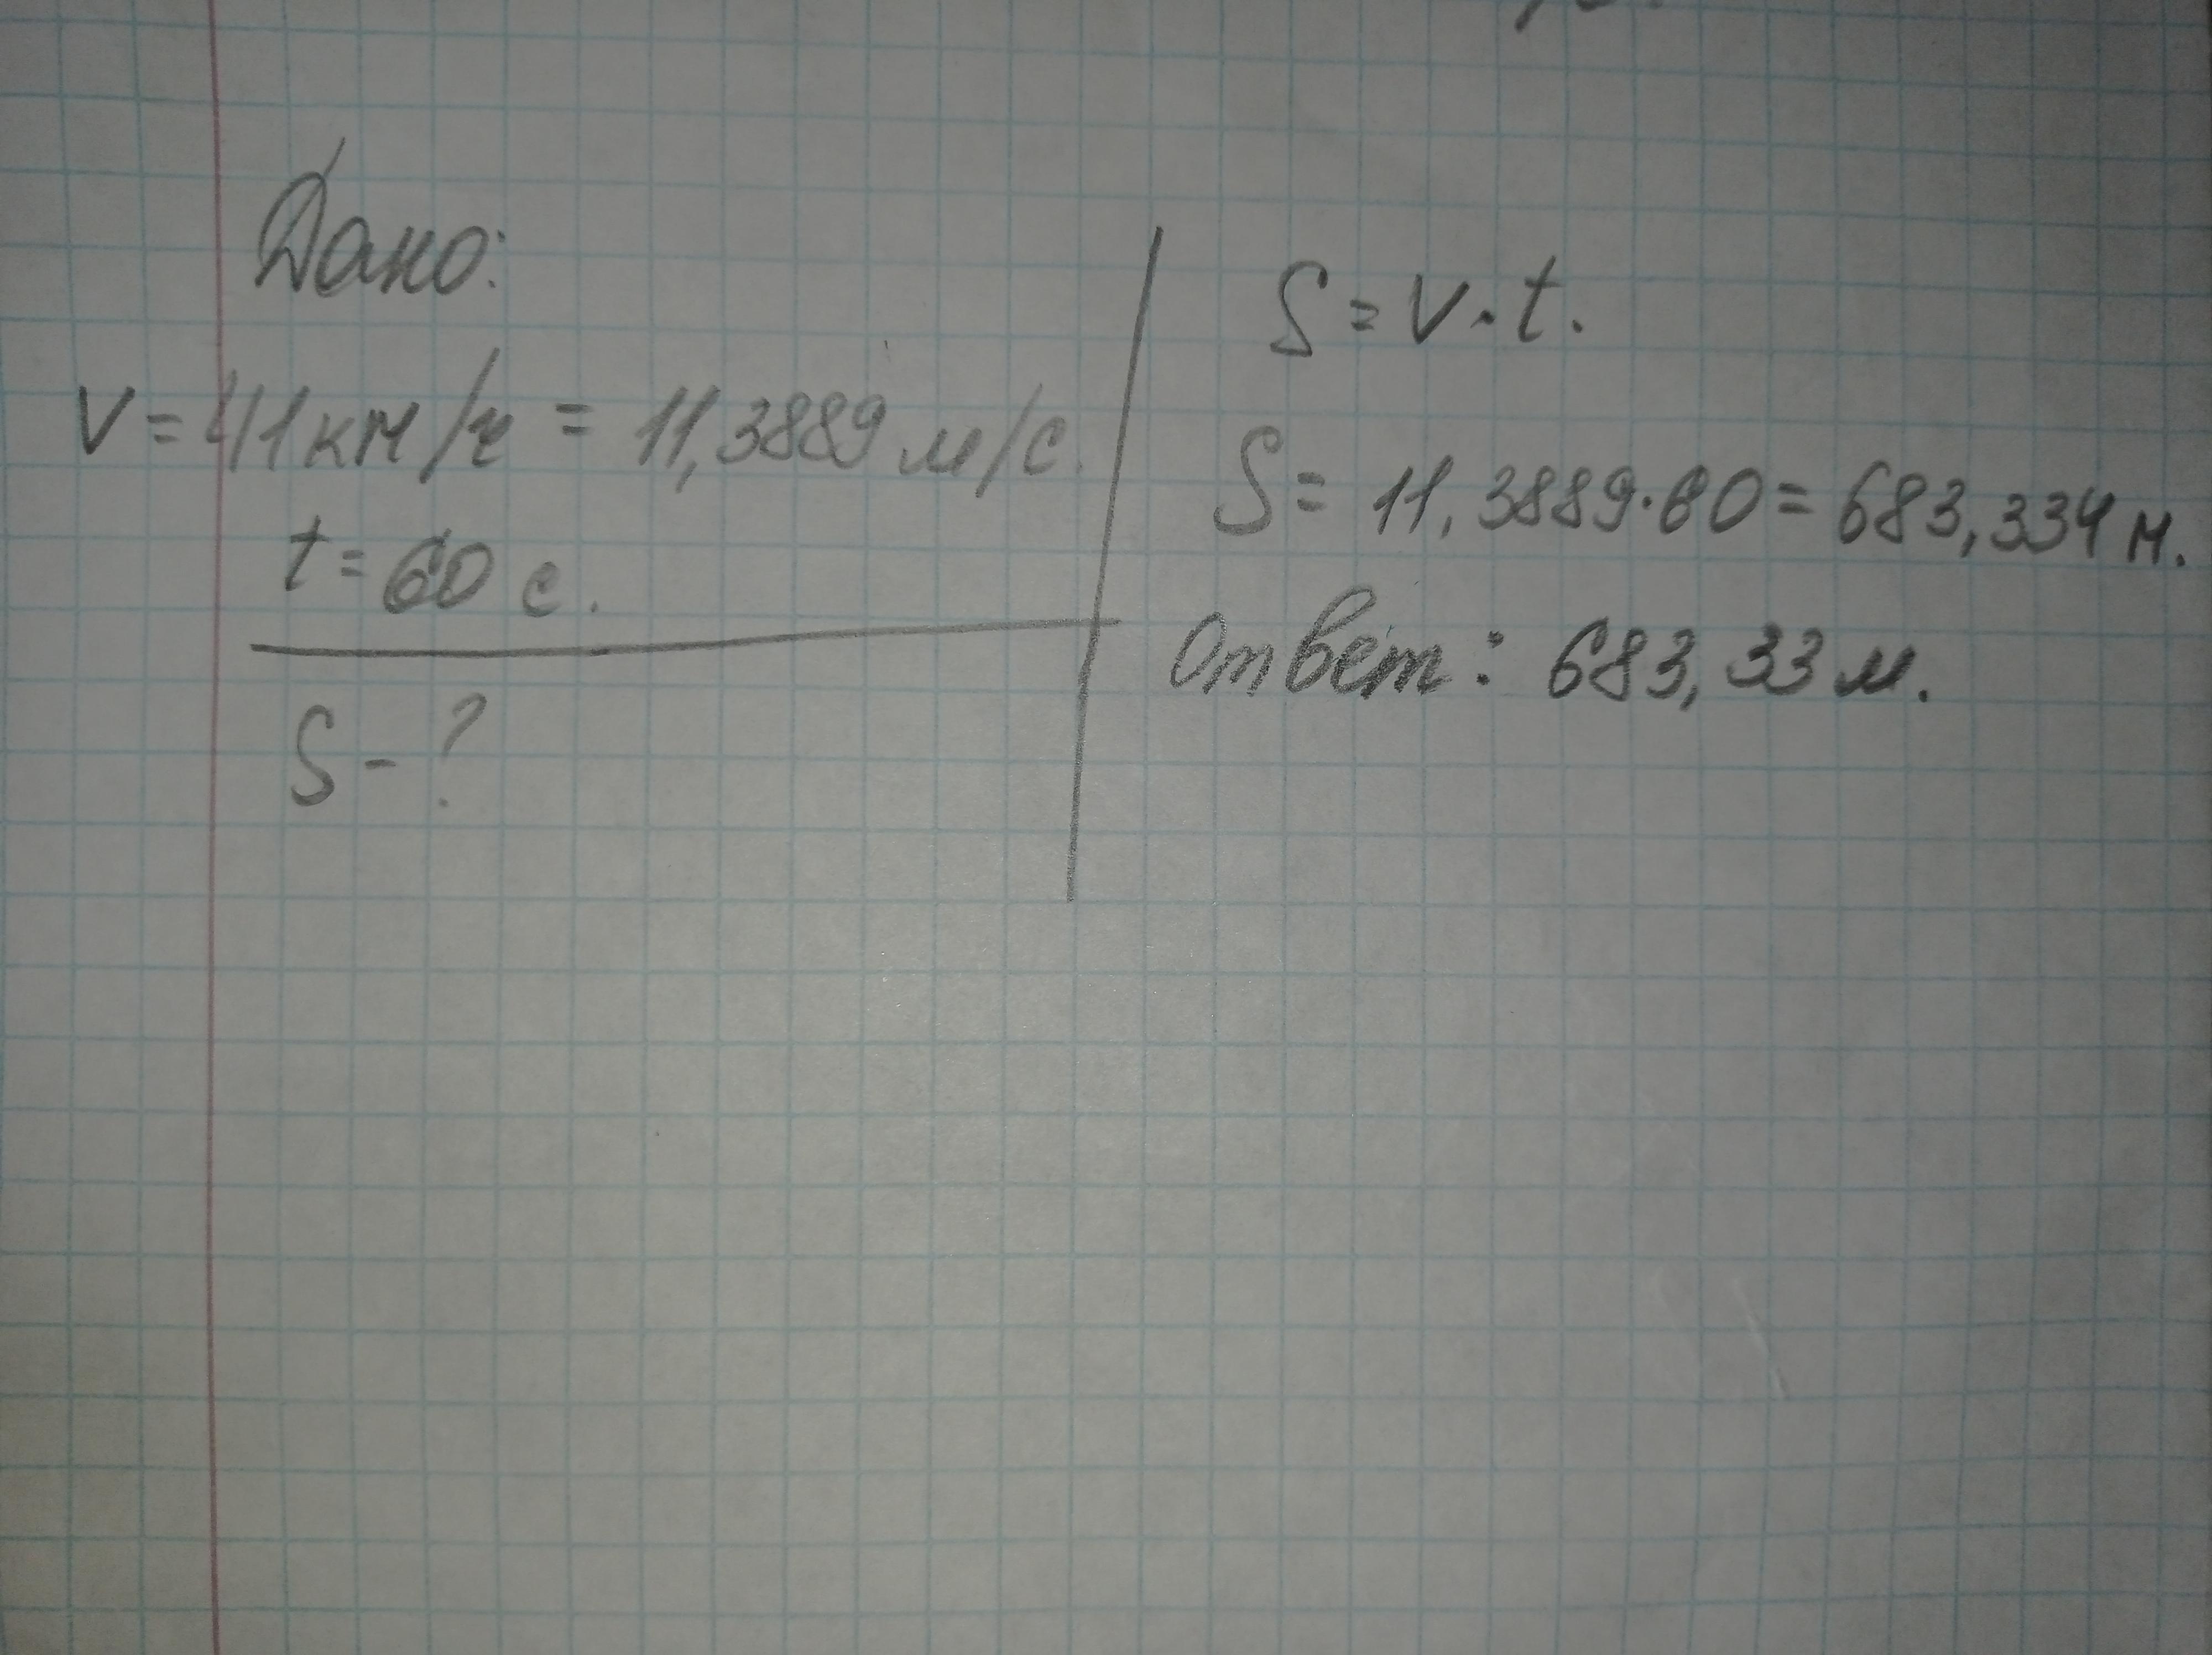 Дано:
V = 41 км/ч = 11,3889 м/с.
t = 60 с.
S - ?
S = V · t.
S = 11,3889 · 60 = 683,334 м.
Ответ: 683,33 м.